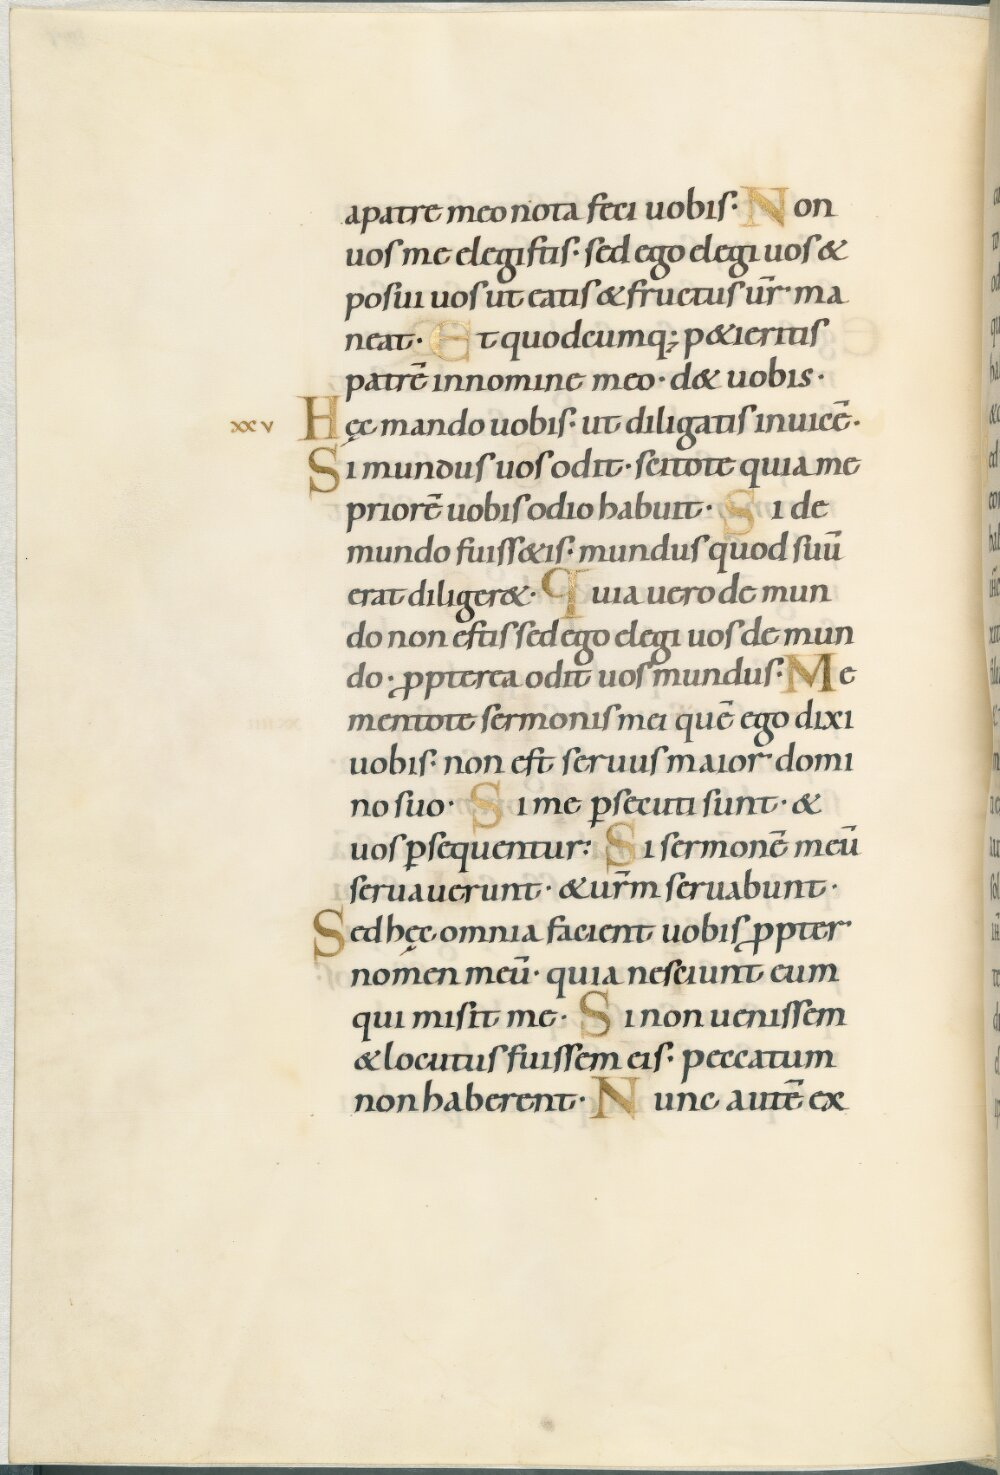 apatre meo nota feci uobis· Non
uos me elegistis· sed ego elegi uos &
posui uos ut eatis & fructus ur̄ ma
neat· Et quodcumq; p&ieritis
patrē innomine meo· d& uobis·
xxv Hęc mando uobis· ut diligatis inuicē·
Si mundus uos odit· scitote quia me
priorē uobis odio habuit· Si de
mundo fuiss&is· mundus quod suū
erat diliger&· Quia uero de mun
do non estis sed ego elegi uos de mun
do· ꝓpterea odit uos mundus· Me
mentote sermonis mei quē ego dixi
uobis· non est seruus maior domi
no suo· Si me ꝑsecuti sunt· &
uos ꝑsequentur: Si sermonē meū
seruauerunt· & ur̄m seruabunt·
Sed hęc omnia facient uobis ꝓpter
nomen meū· quia nesciunt eum
qui misit me· Si non uenissem
& locutus fuissem eis· peccatum
non haberent· Nunc autē ex